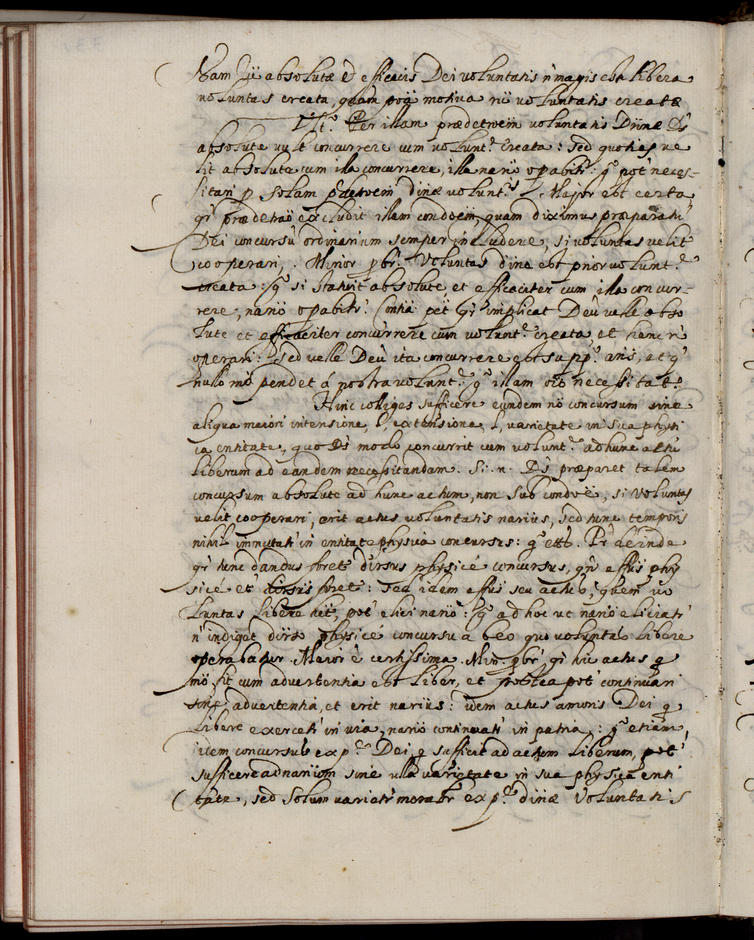 Nam vi absolutæ et efficacis Dei voluntatis n̄ magis est libera
voluntas creata, quam posi motiva vi voluntatis creatæ
Ult.º Per illam prædeterm voluntatis Divinæ Ds
absolute vult concurrere cum volunt.e creata: sed quoties ve
lit absolute cum illa concurrere, illa nariō opabitr: gº pot neces-
sitari p solam predeterm divinæ volunt.s Major est certa,
qr prædeterō excludit illam condōem, quam diximus præparati
Dei concursū ordinarium semper includere, si voluntas velit
cooperari. Minor pbr. Voluntas divina est prior volunt.e
creata: gº si statuit absolute et efficaciter cum illa concur-
rere, nariō opabitr. Confir pot qr implicat Deū velle abso
lute et efficaciter concurrere cum volunt.e creata et hanc n̄
operari: sed velle Deū ita concurrere est supp. ans, et qº
nullo mō pendet á nostra volunt.e gº illam oīō necessitat.
Hinc colliges sufficere eundem nō concursum sine
aliqua maiori intensione, l, extensione, l, varietate in sua physi
ca entitate, quo Ds modo concurrit cum volunt.e ad hunc actū
liberum ad eandem necessitandam. Si .n. Ds præparet talem
concursum absolute ad hunc actum, non sub condōe, si voluntas
velit cooperari, erit actus voluntatis narius, sed tunc temporis
nihil immutati in entitate physica concursus: gº etc. Pr deinde
qr tunc dandus foret diversus physicé concursus, qn effus phy
sicé et diversus foret: sed idem effus seu actus, quem vo
luntas libere elicit, pot elici nariō: gº ad hoc ut nariō eliciatr
n̄ indiget diverso physicé concursu a beo quo voluntas libere
operabatur. Maior é certissima. Min. pbr, qr hic actus q
mō fit cum advertentia est liber, et postea pot continuari
sine advertentia, et erit narius: idem actus amoris Dei q
libere exerceti in via, nariō continuati in patria: gº etiam
idem concursus ex p.e Dei q sufficit ad actum liberum, pot
sufficere ad nariūm sine ulla varietate in sua physica enti
tate, sed solum variati moralr ex p.e divinæ Voluntatis